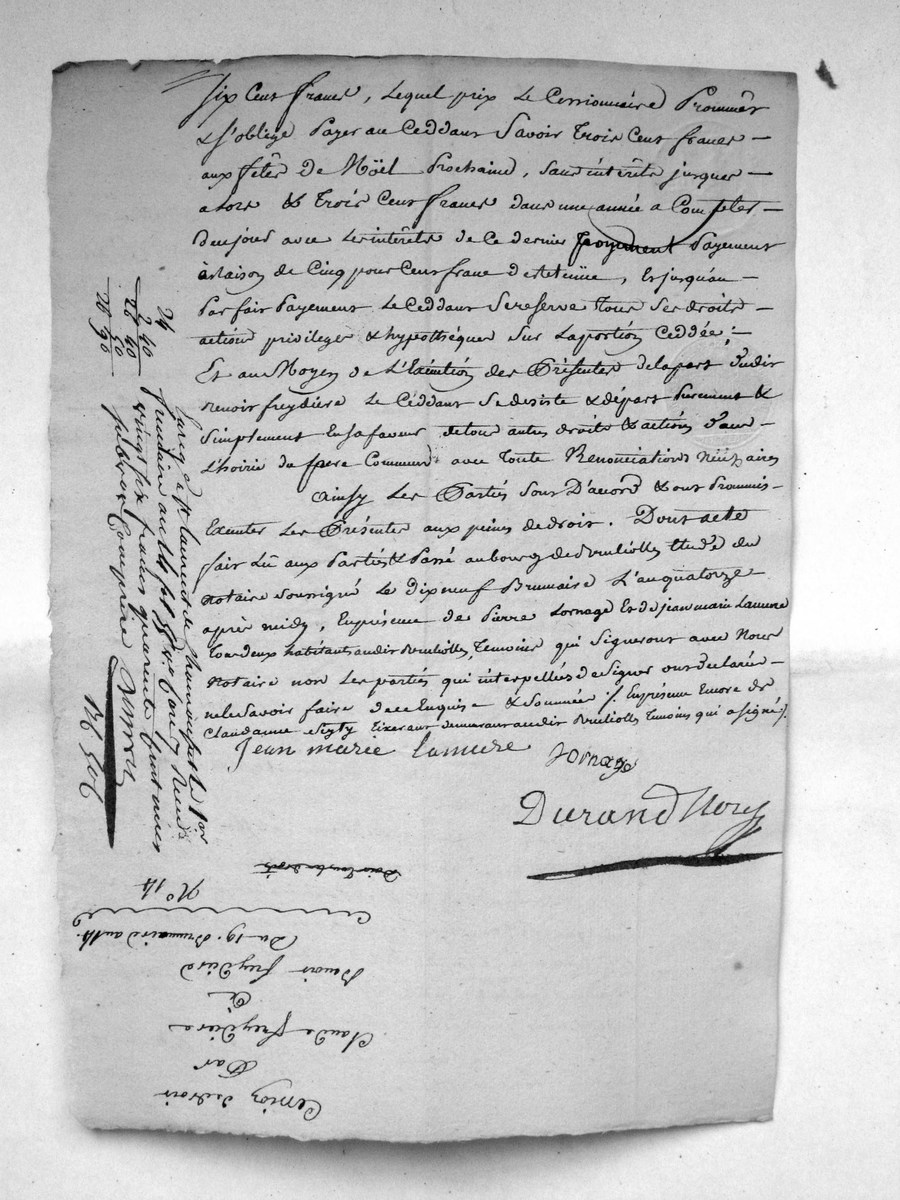 six Cent francs, Lequel prix Le Cessionnaire Prommêt
& s'oblige Payer au Ceddant Savoir Trois Cent francs —
aux fêtes De Noël Prochaine, sans intérêts jusques —
alors & Trois Cent francs dans une année a Compter —
De ce jour avec Les intérêts de Ce dernier payement Payement
à Raison de Cinq pour Cent franc de retenüe, Et jusqu'au —
Parfait Payement Le Ceddant Se reserve tous Ses droits
actions privileges & hypothéques Sur La portion Ceddée; —
Et au Moyen de L'Exécution des Présentes de la part dudit
Benoit freydiere Le Céddant Se desiste & départ Purement &
Simplement En sa faveur, de tous autres droits & actions dans —
L'hoirie du frere Commun avec Toute Renonciations
Ainsy Les Parties Sont D'accord & ont Prommis
Exécuter Les Présentes aux peines de droit. Dont acte
fait Lû aux Parties & Passé au bourg de Brulliolles Etude du
notaire soussigné Le Dix neuf Brumaire L'an quatorze
après midy, En présence de Pierre Lornage Et de jean marie Lamure
tous deux habitants audit Brulliolles, Temoins qui Signeront avec Nous
Notaire non Les parties qui interpellées de Signer ont déclarées —
ne le Savoir faire de ce Enquise & Sommée /. En présence Encore de
Claudanne tixerant demeurant audit Brulliolles Temoins qui a signé /.
Jean marie lamure
Lornage
Durand Nore
24
2 40
26 40
2 50
28 90
Enreg. a St Laurent de Chamousset le 1er
frimaire an 14 fol. Recu
vingt six francs quarante Centimes
subvon Comprise
N° 14
Du 19. Brumaire an 14.
Benoit freydiere
a
Claude freydiere
Par
Cession de droit